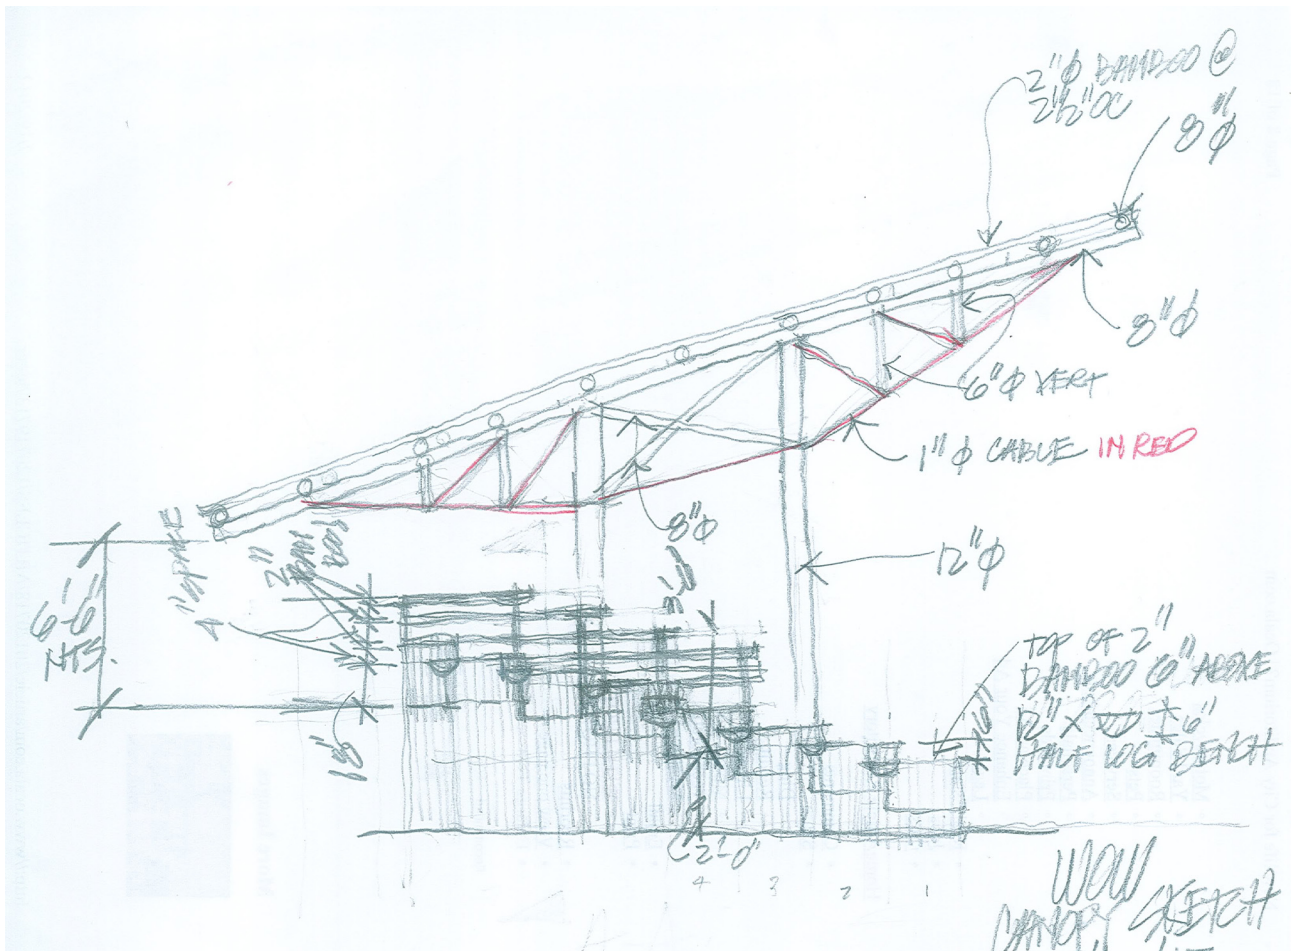 2"φ BAMBOO @
2 1/2" OC
8"φ
8"φ
6"φ VERT
1"φ CABLE IN RED
8"φ
12"φ
6'-6"
NTS.
4" SPACE
2"
18"
TOP OF 2"
BAMBOO 6" ABOVE
12" X ± 6"
HALF LOG BENCH
6"
2'-0"
4 3 2 1
WOW
CANOPY SKETCH